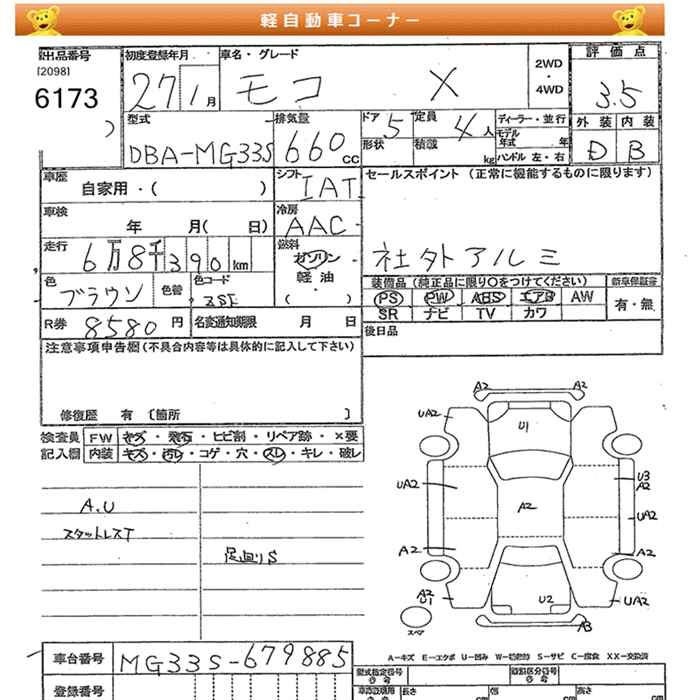 軽自動車コーナー
出品番号 初度登録年月 車名・グレード 2WD・4WD 評価点
[2098]
6173 27 1月 モコ X 3.5
型式 排気量 ドア 5 定員 4人 ディーラー・並行 外装 内装
DBA-MG33S 660cc 形状 積載 kg モデル年式 年 D B
ハンドル 左・右
車歴 シフト セールスポイント(正常に機能するものに限ります)
自家用・( ) IAT
車検 年 月( 日) 冷房 AAC
走行 6万8千390km 燃料 ガソリン・軽油・( ) 社外アルミ
色 ブラウン 色替 色コード 装備品(純正品に限り○をつけてください) 新車保証書
PS PW ABS エアB AW 有・無
SR ナビ TV カワ
R券 8580円 名変通知期限 月 日 後日品
注意事項申告欄(不具合内容等は具体的に記入して下さい)
修復歴 有〔箇所 〕
検査員 FW キズ・飛石・ヒビ割・リペア跡・×要
記入欄 内装 キズ・汚レ・コゲ・穴・スレ・キレ・破レ
A.U
スタットレスT
足廻りS
A2 A2
UA2 U1
UA2 A2 U3 A2
UA2
A2 A2
A2 U1 U2 UA2
A3
スペア
A-キズ E-エクボ U-凹み W-補修跡 S-サビ C-腐食 XX-交換済
車台番号 MG33S-679885
登録番号
型式指定番号 類別区分番号
長さ cm 幅 cm 高さ cm